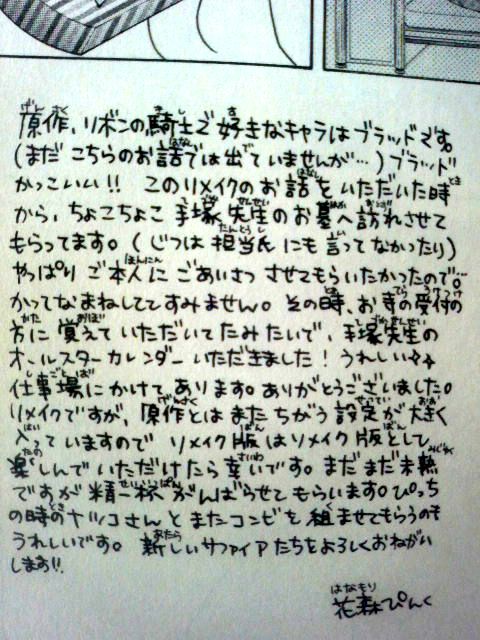 原作、リボンの騎士で好きなキャラはブラッドです。
(まだこちらのお話では出ていませんが…)ブラッド
かっこいい!! このリメイクのお話をいただいた時
から、ちょこちょこ手塚先生のお墓へ訪れさせて
もらってます。(じつは担当氏にも言ってなかったり)
やっぱりご本人にごあいさつさせてもらいたかったので…。
かってなまねしてすみません。その時、お寺の受付の
方に覚えていただいてたみたいで、手塚先生の
オールスターカレンダーいただきました!うれしい✧✧
仕事場にかけてあります。ありがとうございました。
リメイクですが、原作とはまたちがう設定が大きく
入っていますので リメイク版はリメイク版として
楽しんでいただけたら幸いです。まだまだ未熟
ですが精一杯がんばらせてもらいます。ぴっち
の時のナツコさんとまたコンビを組ませてもらうのも
うれしいです。新しいサファイアたちをよろしくおねがい
します!!
花森ぴんく